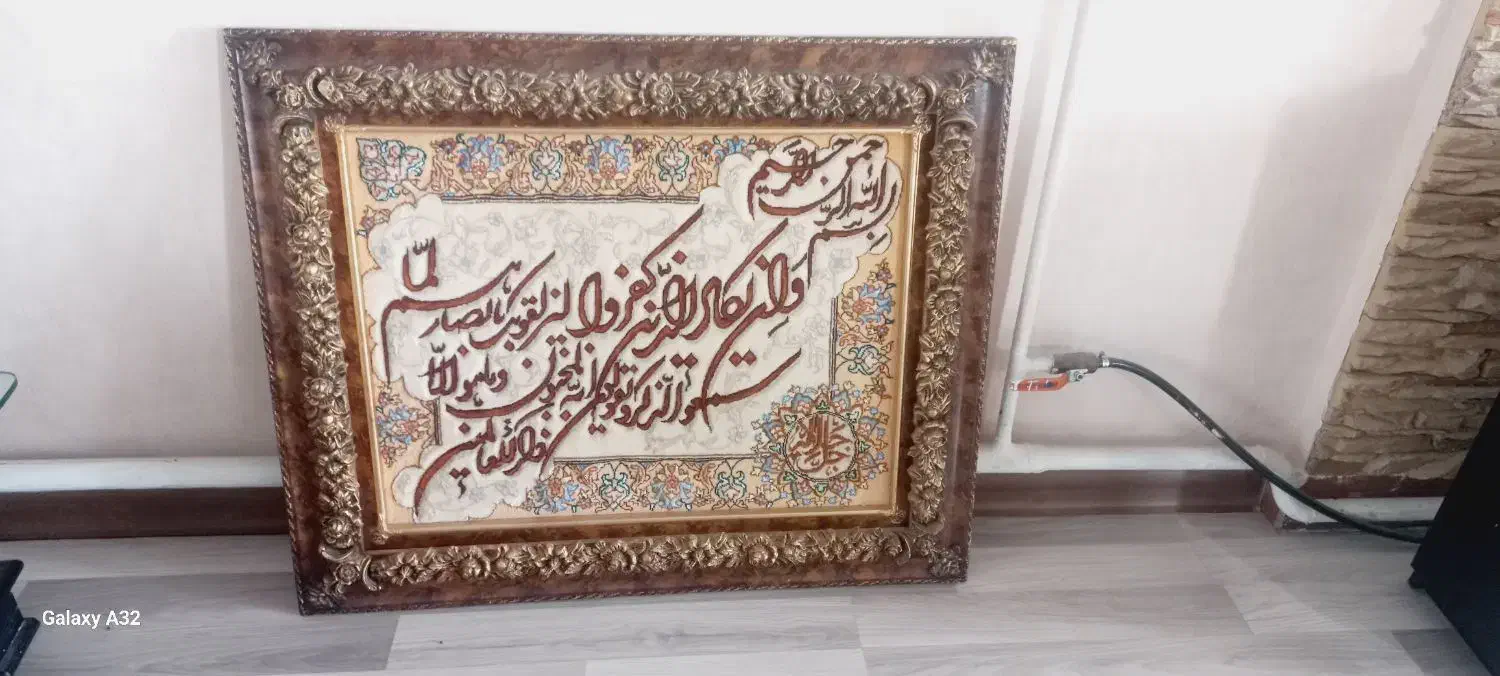 بسم الله الرحمن الرحیم
وَاِن یکاد الذین کفروا لیزلقونک بابصارهم لمّا
سمعوا الذکر و یقولون انه لمجنون و ما هو الّا
ذکر للعالمین
جل جلاله
Galaxy A32